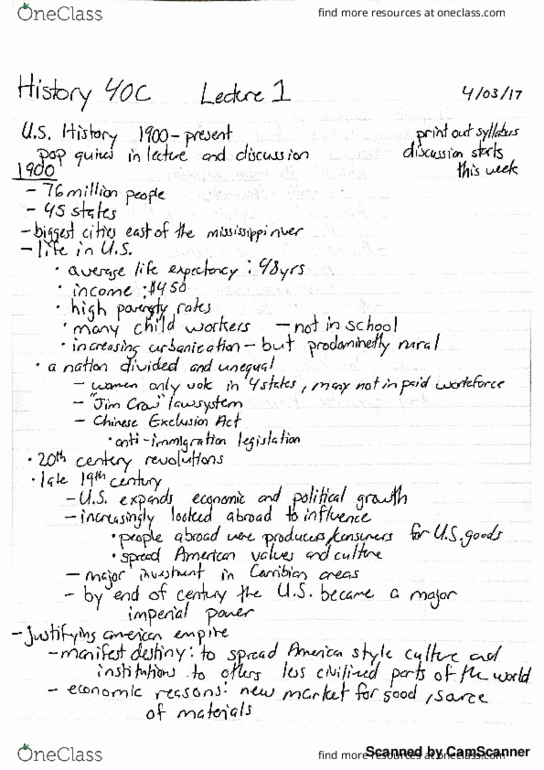 OneClass find more resources at oneclass.com
History 40C Lecture 1 4/03/17
U.S. History 1900-present print out syllabus
pop quizes in lecture and discussion discussion starts
1900 this week
- 76 million people
- 45 states
- biggest cities east of the mississippi river
- life in U.S.
• average life expectency : 48yrs
• income : $450
• high poverty rates
• many child workers - not in school
• increasing urbanization - but predominetly rural
• a nation divided and unequal
- women only vote in 4 states, many not in paid workforce
- "Jim Crow" law system
- Chinese Exclusion Act
• anti-immigration legislation
• 20th century revolutions
• late 19th century
- U.S. expands economic and political growth
- increasingly looked abroad to influence
• people abroad were producers/consumers for U.S. goods
• spread American values and culture
- major investment in Carribian areas
- by end of century the U.S. became a major
imperial power
- justifying american empire
- manifest destiny: to spread America style culture and
institutions to others less civilized parts of the world
- economic reasons: new market for good, source
of materials
OneClass find more resources at oneclass.com
Scanned by CamScanner